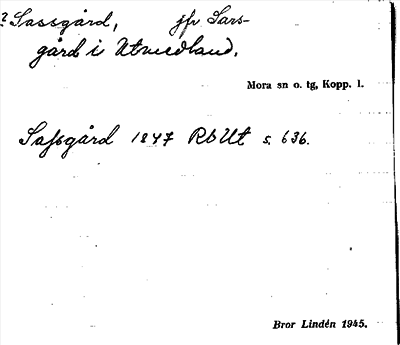 ? Sassgård, jfr Sars-
gård i Utmedland.
Mora sn o. tg, Kopp. l.
Safsgård 1847 RbUt s. 636.
Bror Lindén 1945.